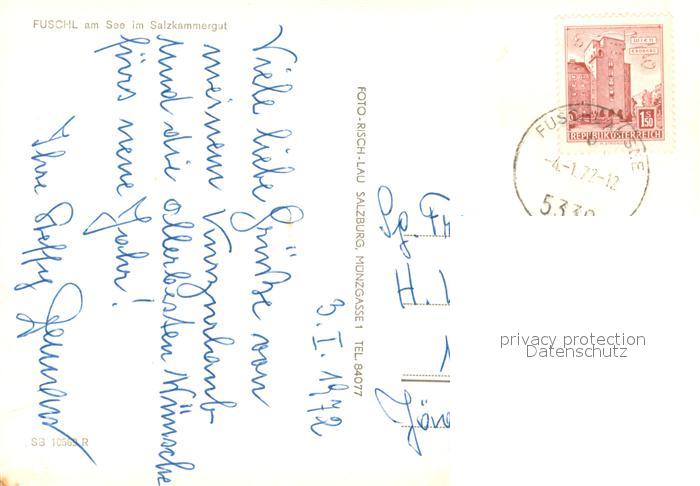 FUSCHL am See im Salzkammergut
3. I. 1972
Viele liebe Grüße von
meinem Kurzurlaub
und die allerbesten Wünsche
fürs neue Jahr!
Ihre Steffy
SB 10569 R
FOTO-RISCH-LAU SALZBURG, MÜNZGASSE 1 TEL. 84077
WIEN
ERDBERG
S 1.50
REPUBLIK ÖSTERREICH
FUSCHL
SEE
-4.-1.72-12
5330
privacy protection
Datenschutz